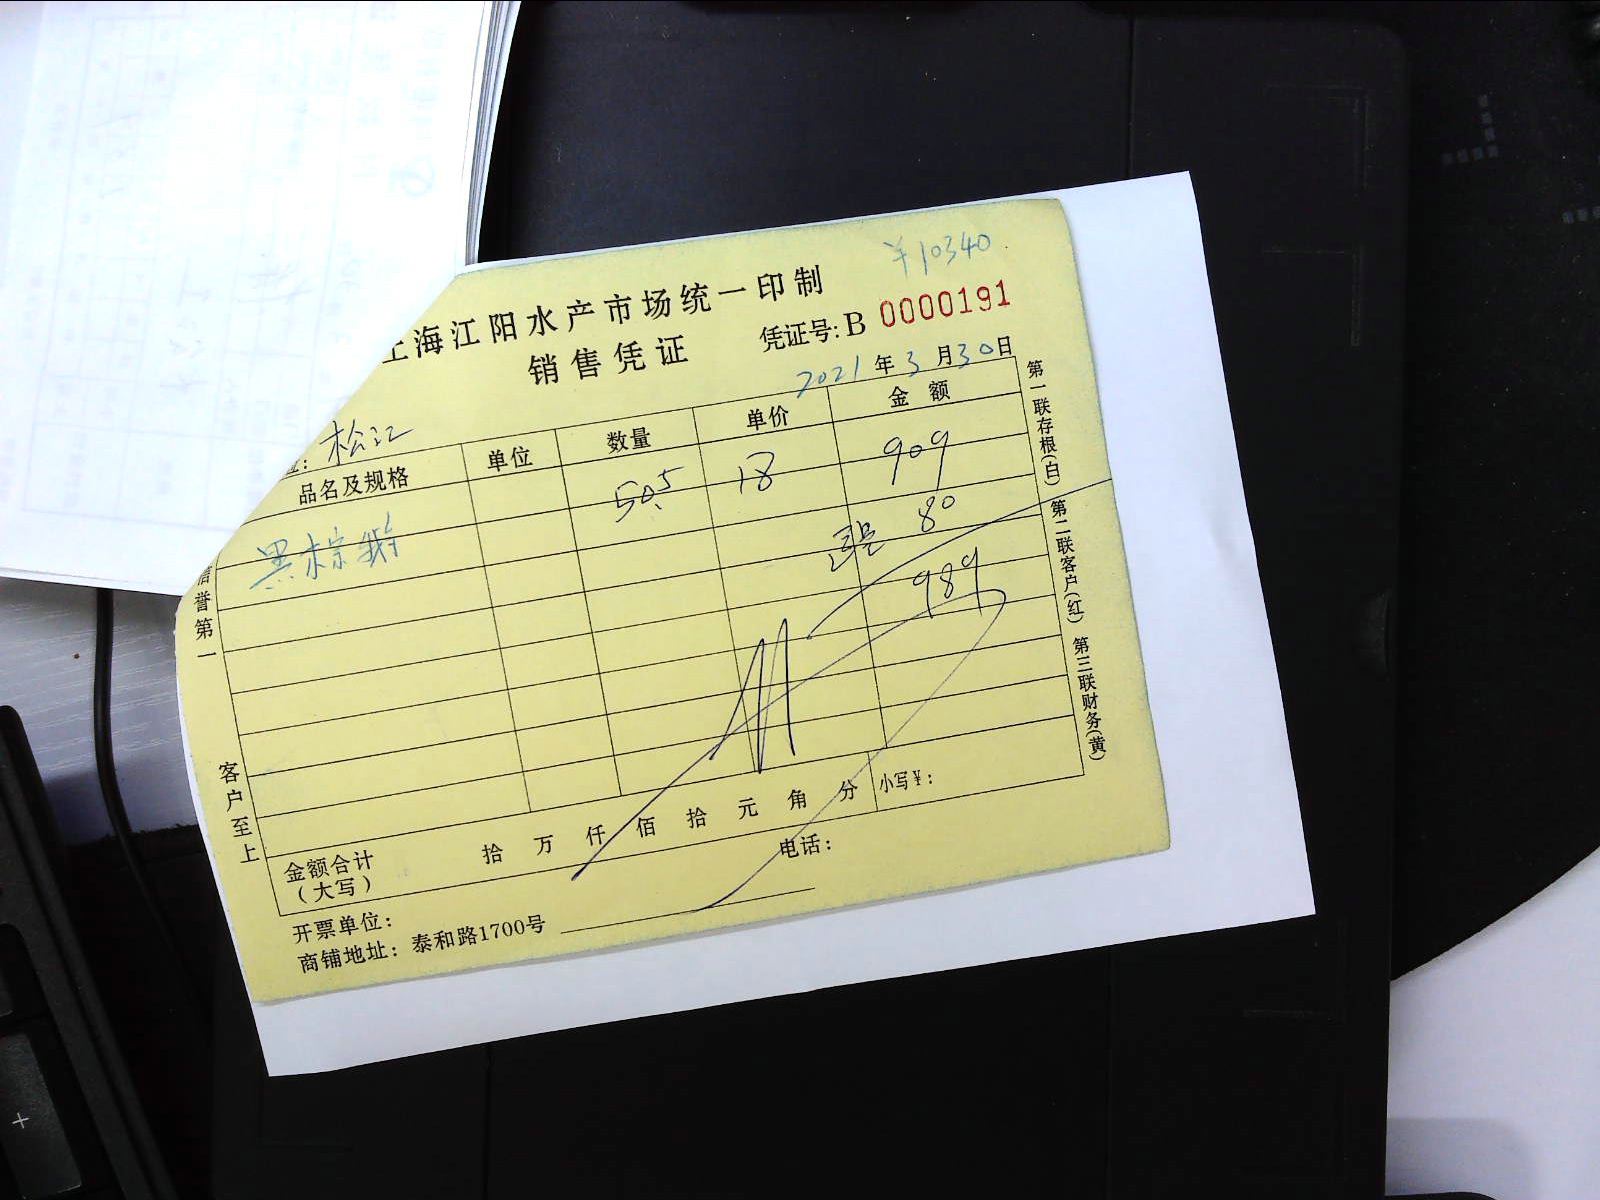 ¥10340
上海江阳水产市场统一印制
销售凭证 凭证号:B 0000191
2021年3月30日
松江
品名及规格 单位 数量 单价 金额
黑棕鹅 50.5 18 909
80
989
金额合计(大写) 拾 万 仟 佰 拾 元 角 分 小写¥:
开票单位: 电话:
商铺地址: 泰和路1700号
信誉第一 客户至上
第一联存根(白) 第二联客户(红) 第三联财务(黄)